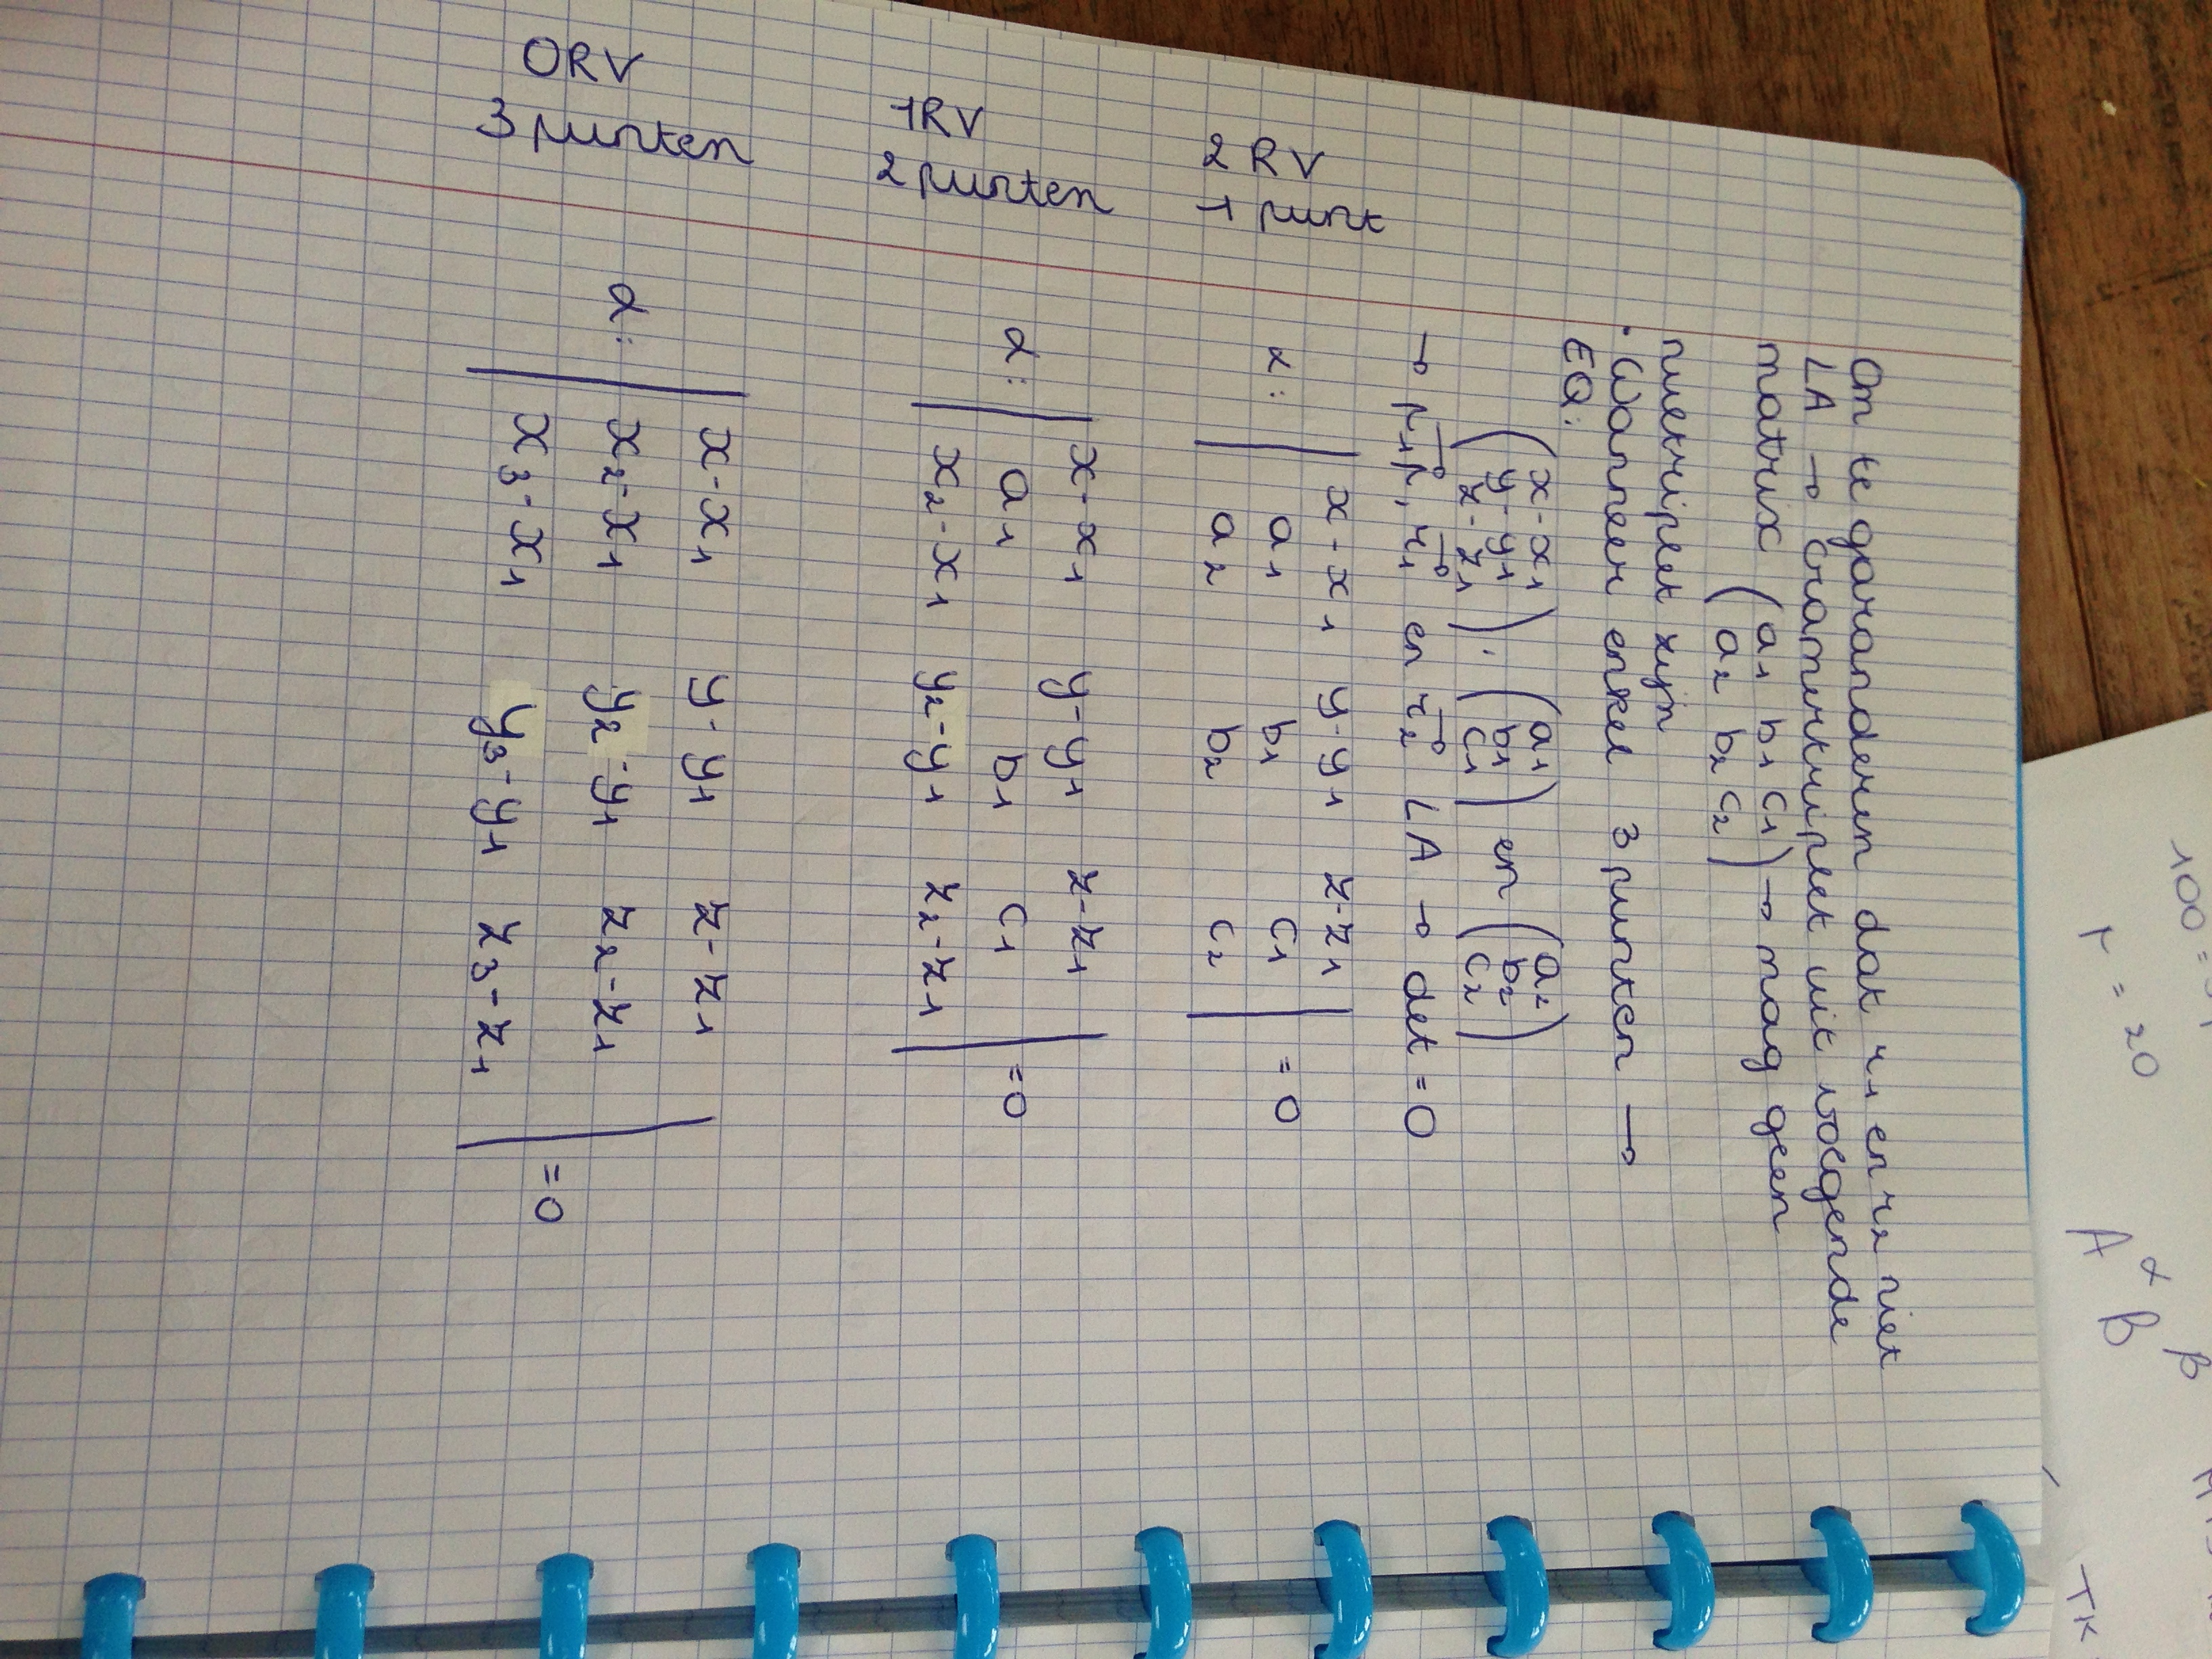 Om te garanderen dat r1 en r2 niet
LA → Cramertriplet uit volgende
matrix (a1 b1 c1
a2 b2 c2) → mag geen
nultriplet zijn
• Wanneer enkel 3 punten →
EQ:
(x-x1
y-y1
z-z1), (a1
b1
c1) en (a2
b2
c2)
→ P1P, r1 en r2 LA → det = 0
2 RV
1 punt
α: | x-x1 y-y1 z-z1
a1 b1 c1
a2 b2 c2 | = 0
1RV
2 punten
α: | x-x1 y-y1 z-z1
a1 b1 c1
x2-x1 y2-y1 z2-z1 | = 0
0RV
3 punten
α: | x-x1 y-y1 z-z1
x2-x1 y2-y1 z2-z1
x3-x1 y3-y1 z3-z1 | = 0
100 =
r = 20
A α B β
TK